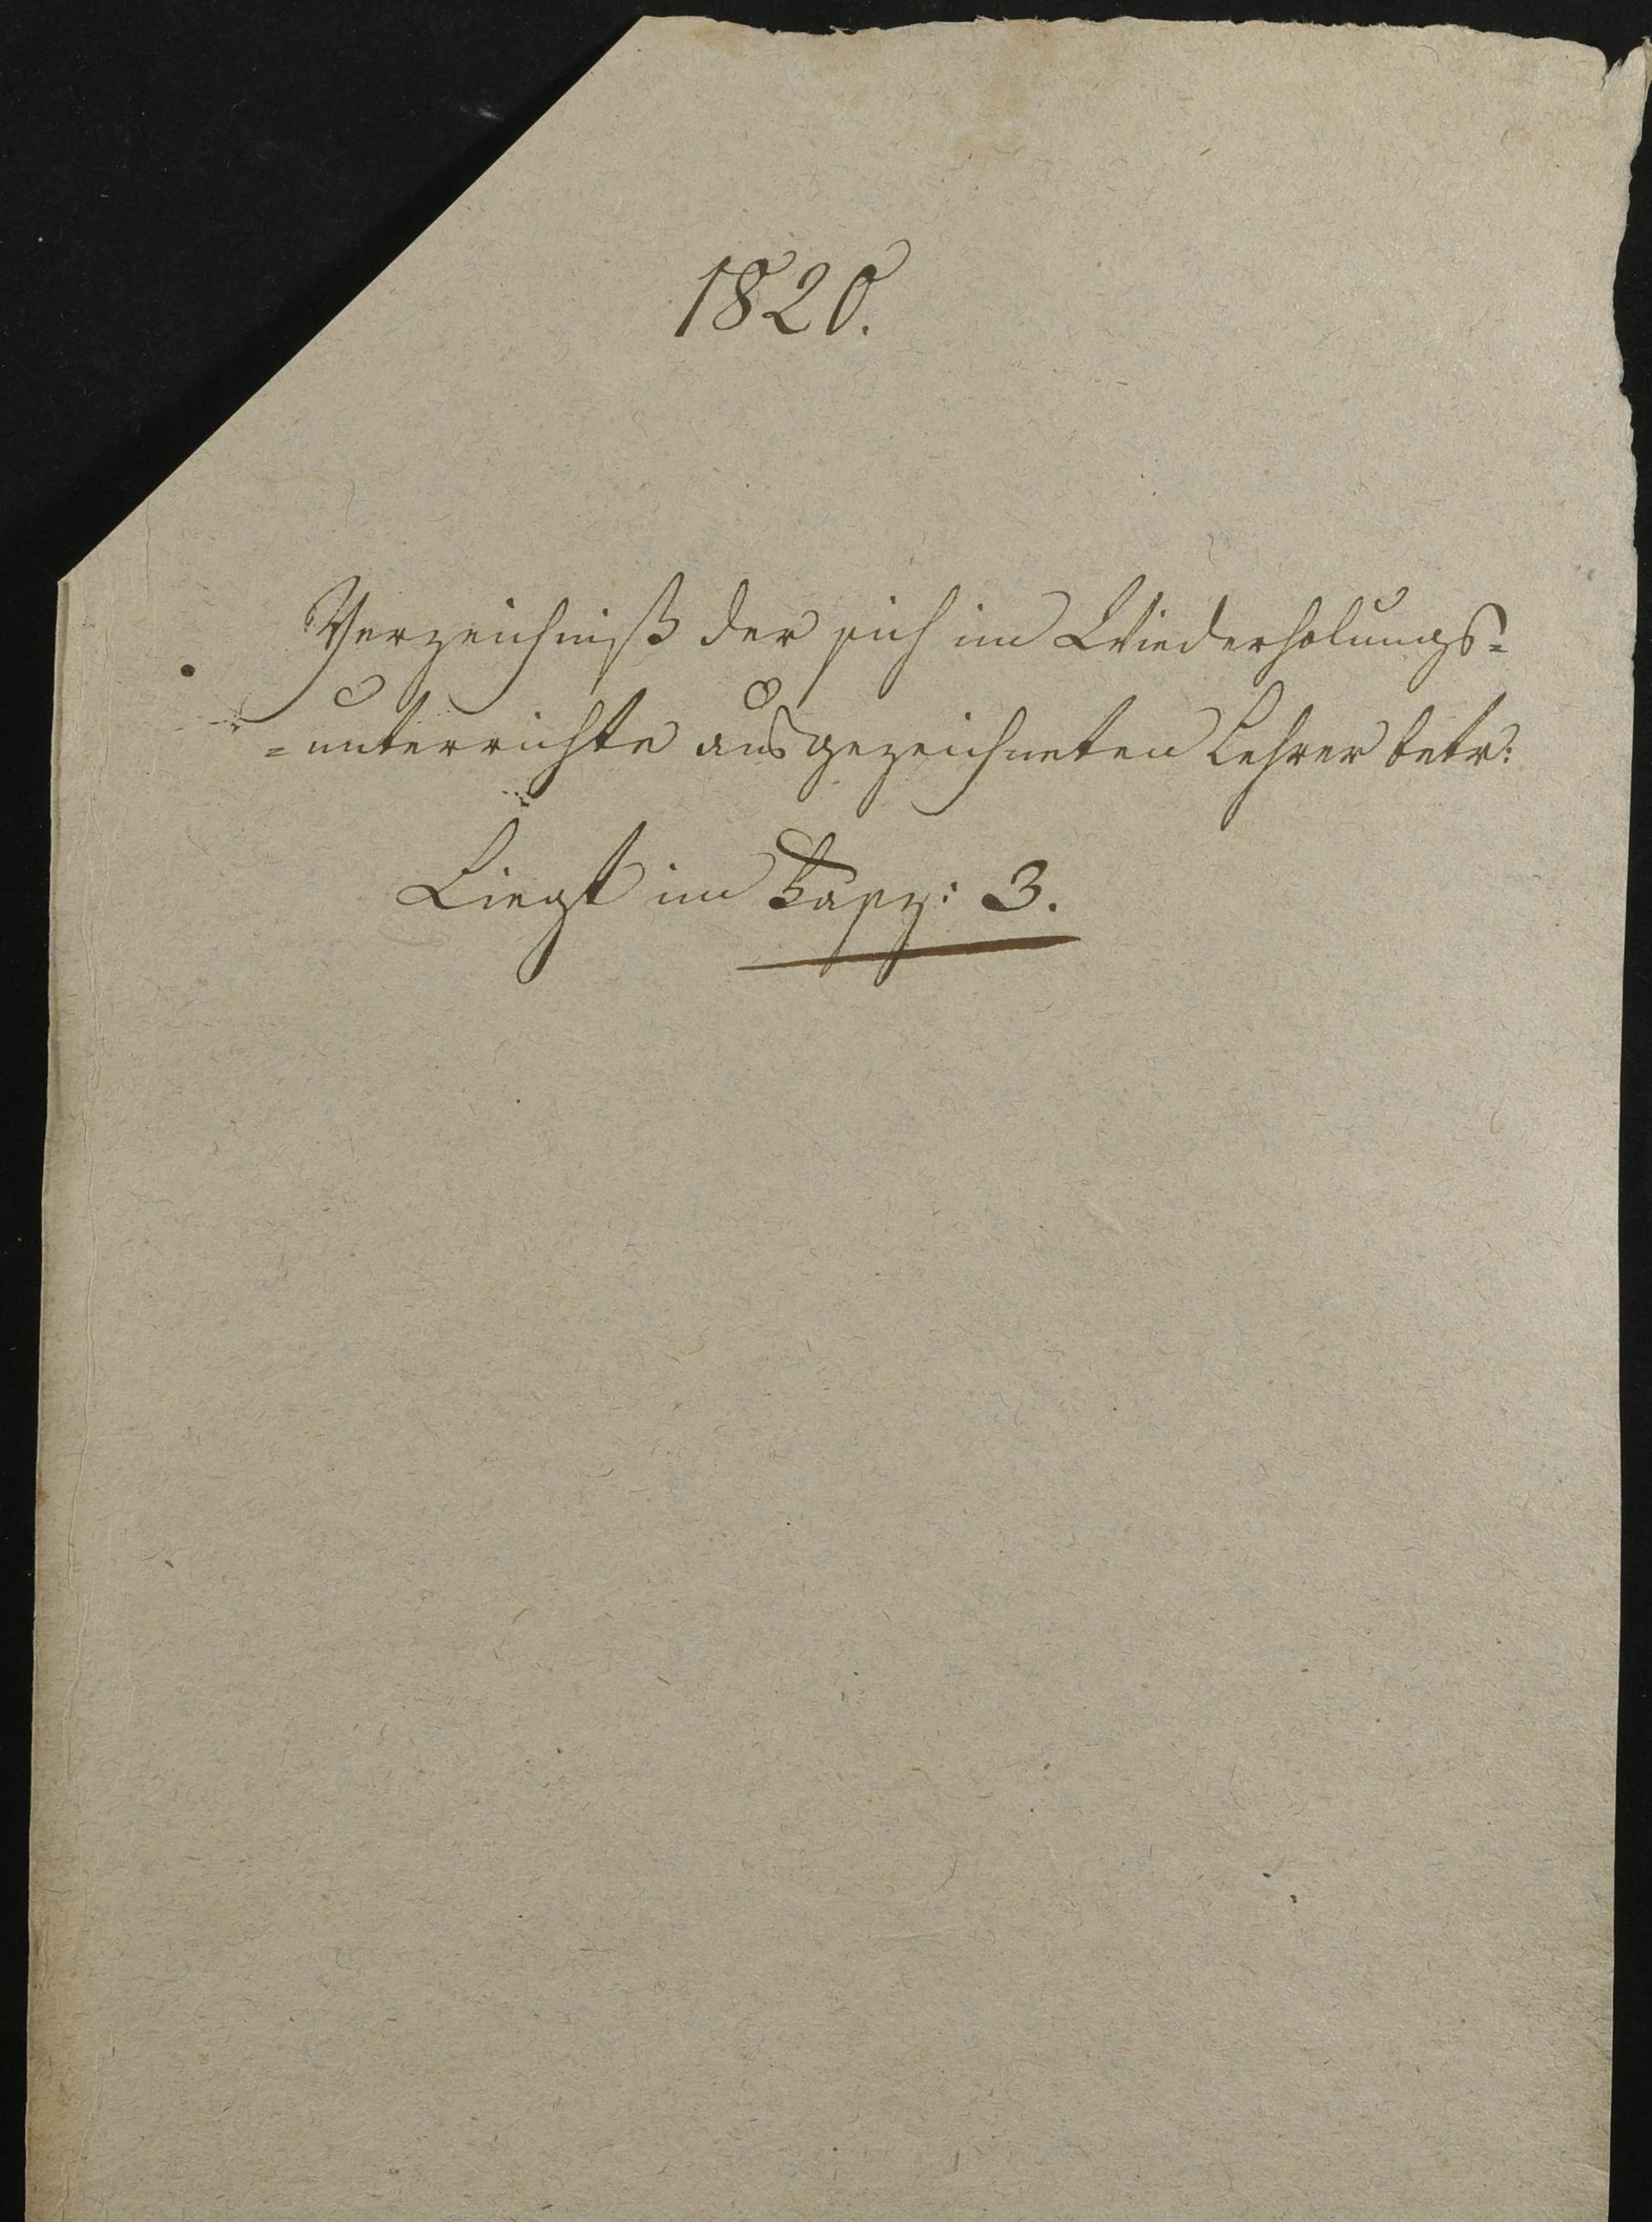 1820.
Verzeichniß der sich im Wiederholungs=
=unterrichte ausgezeichneten Lehrer betr:
Liegt im Fasz: 3.